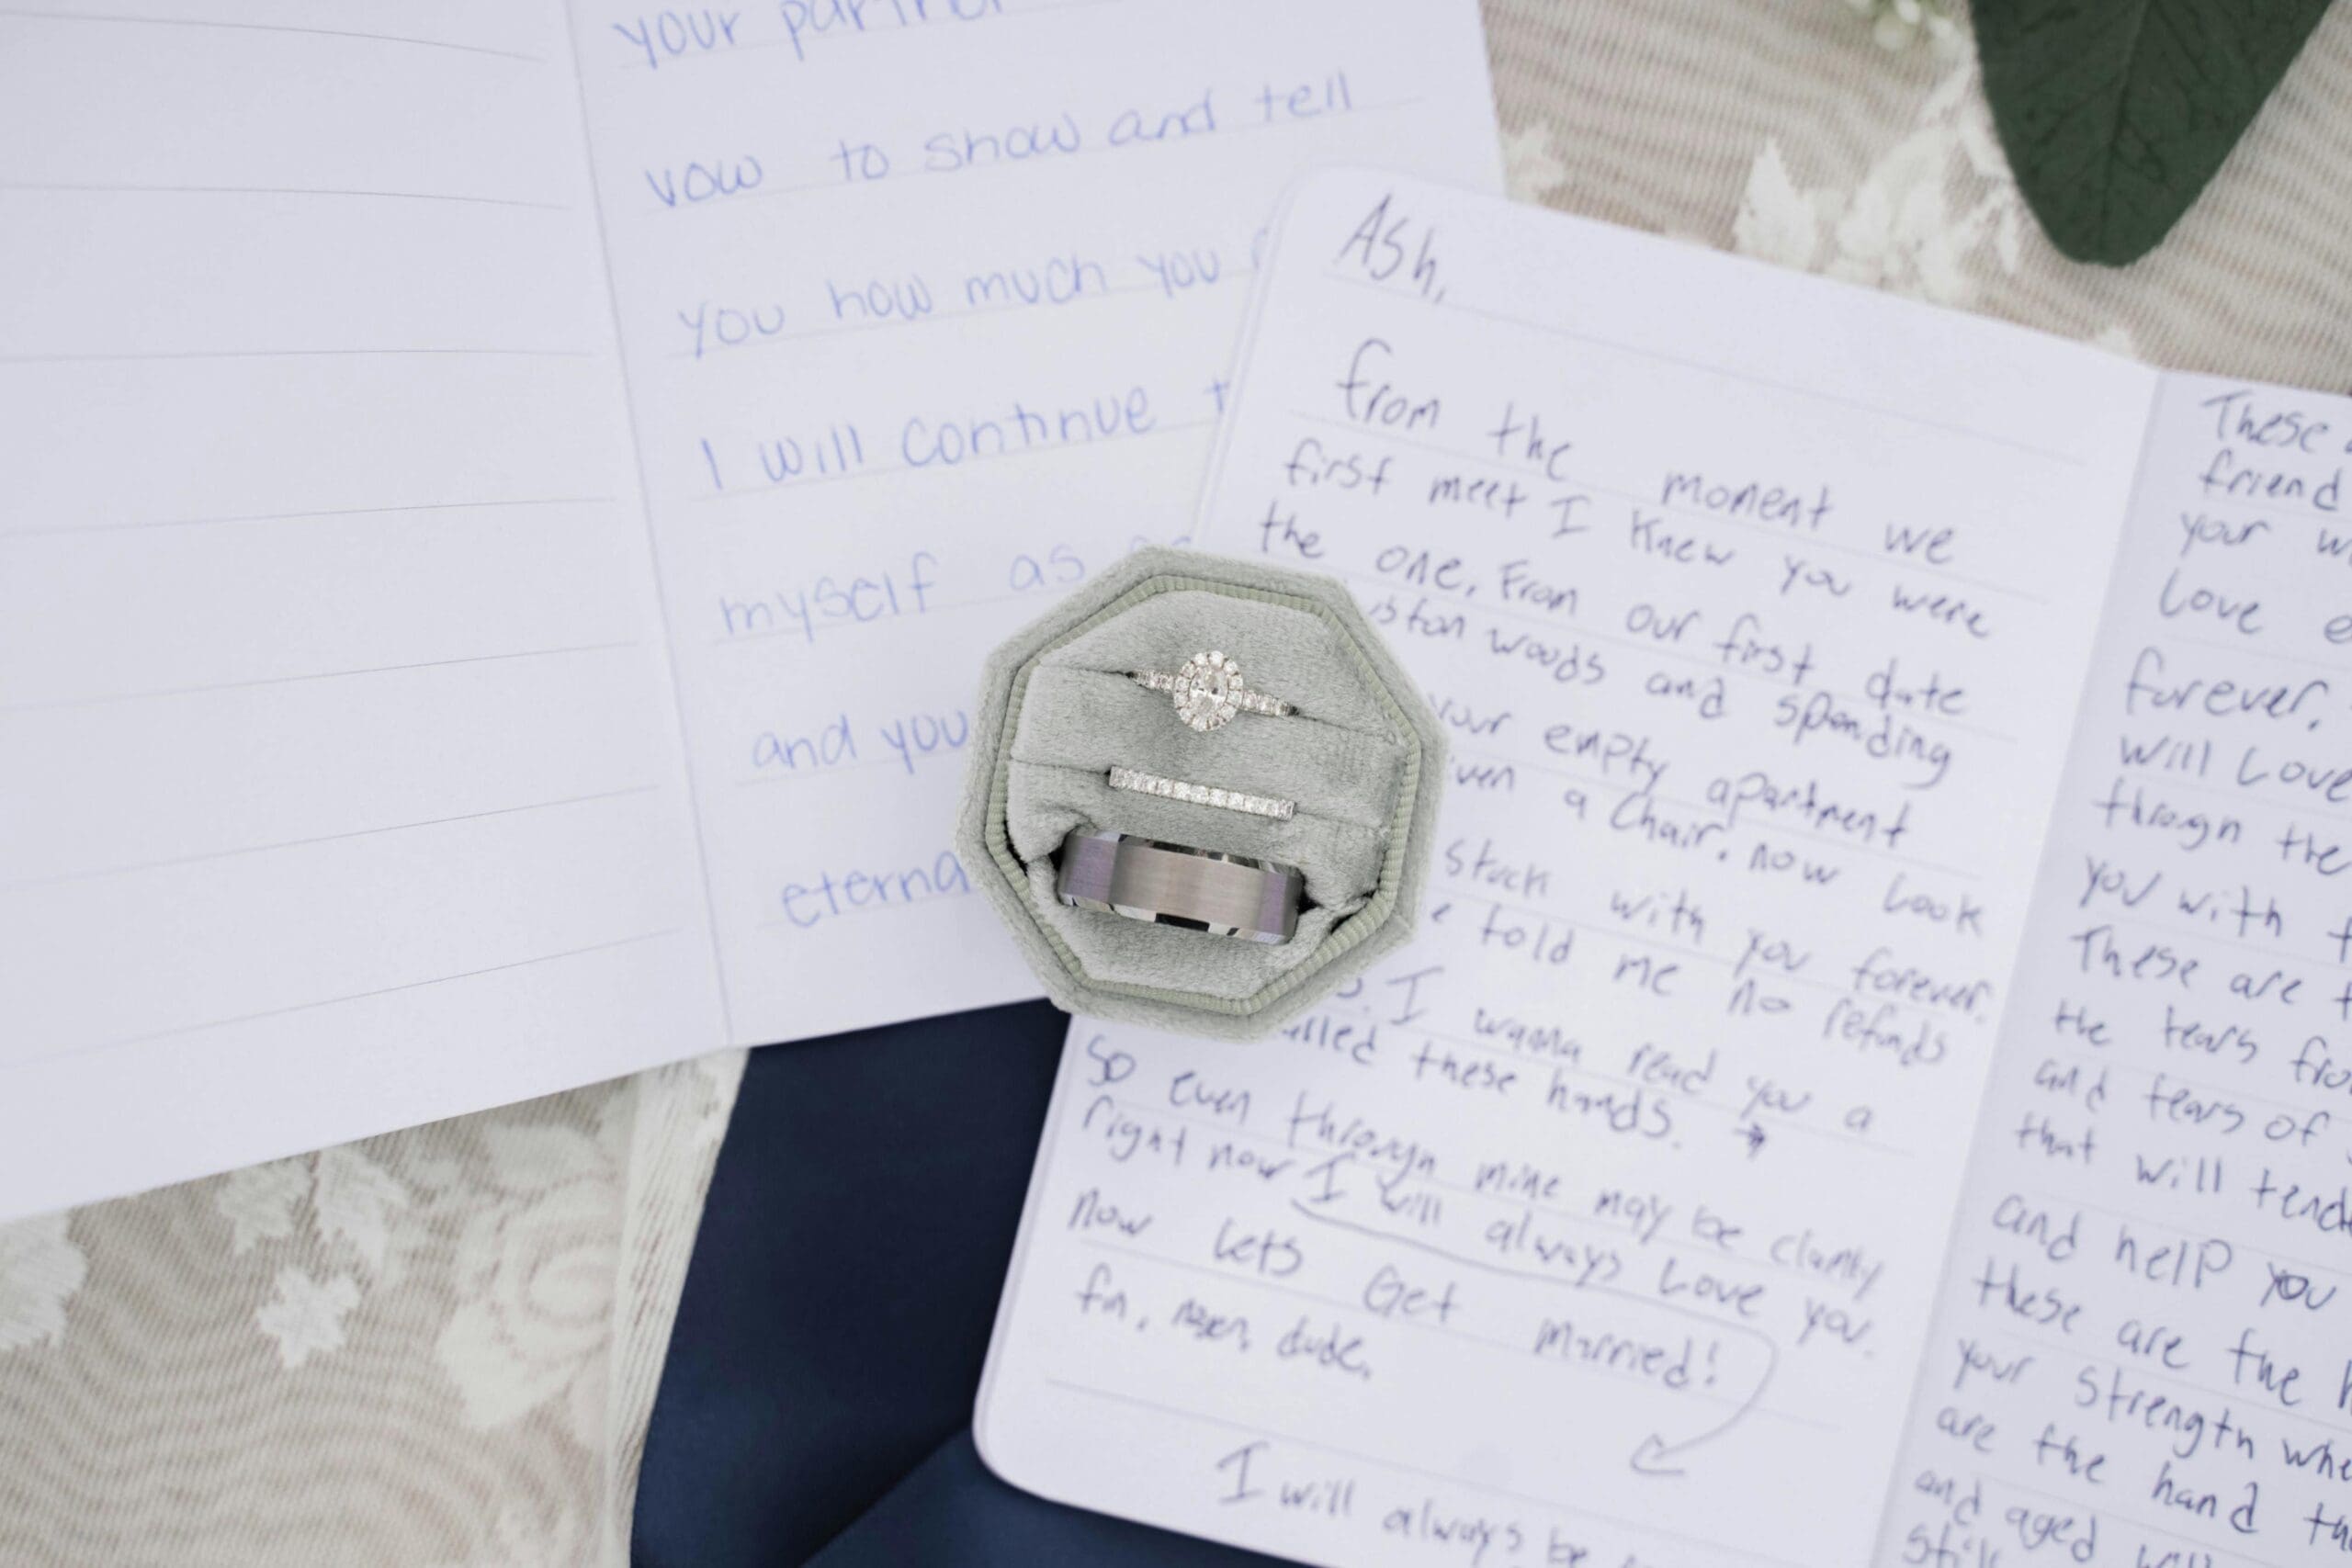 your
vow to show and tell
you how much you
I will continue
myself as
and you
Ash,
from the moment we
first meet I knew you were
the one. From our first date
woods and spending
your empty apartment
a Chair. now Look
stuck with you forever.
told me no refunds
I wanna read you a
these hands.
So even through mine may be clamy
right now I will always Love you.
now Lets Get married!
dude.
I will always be
These
friend
your
Love
forever.
will Love
the
you with
These are
the tears
and tears of
that will
and help you
these are the
your strength
are the hand
and aged will
still